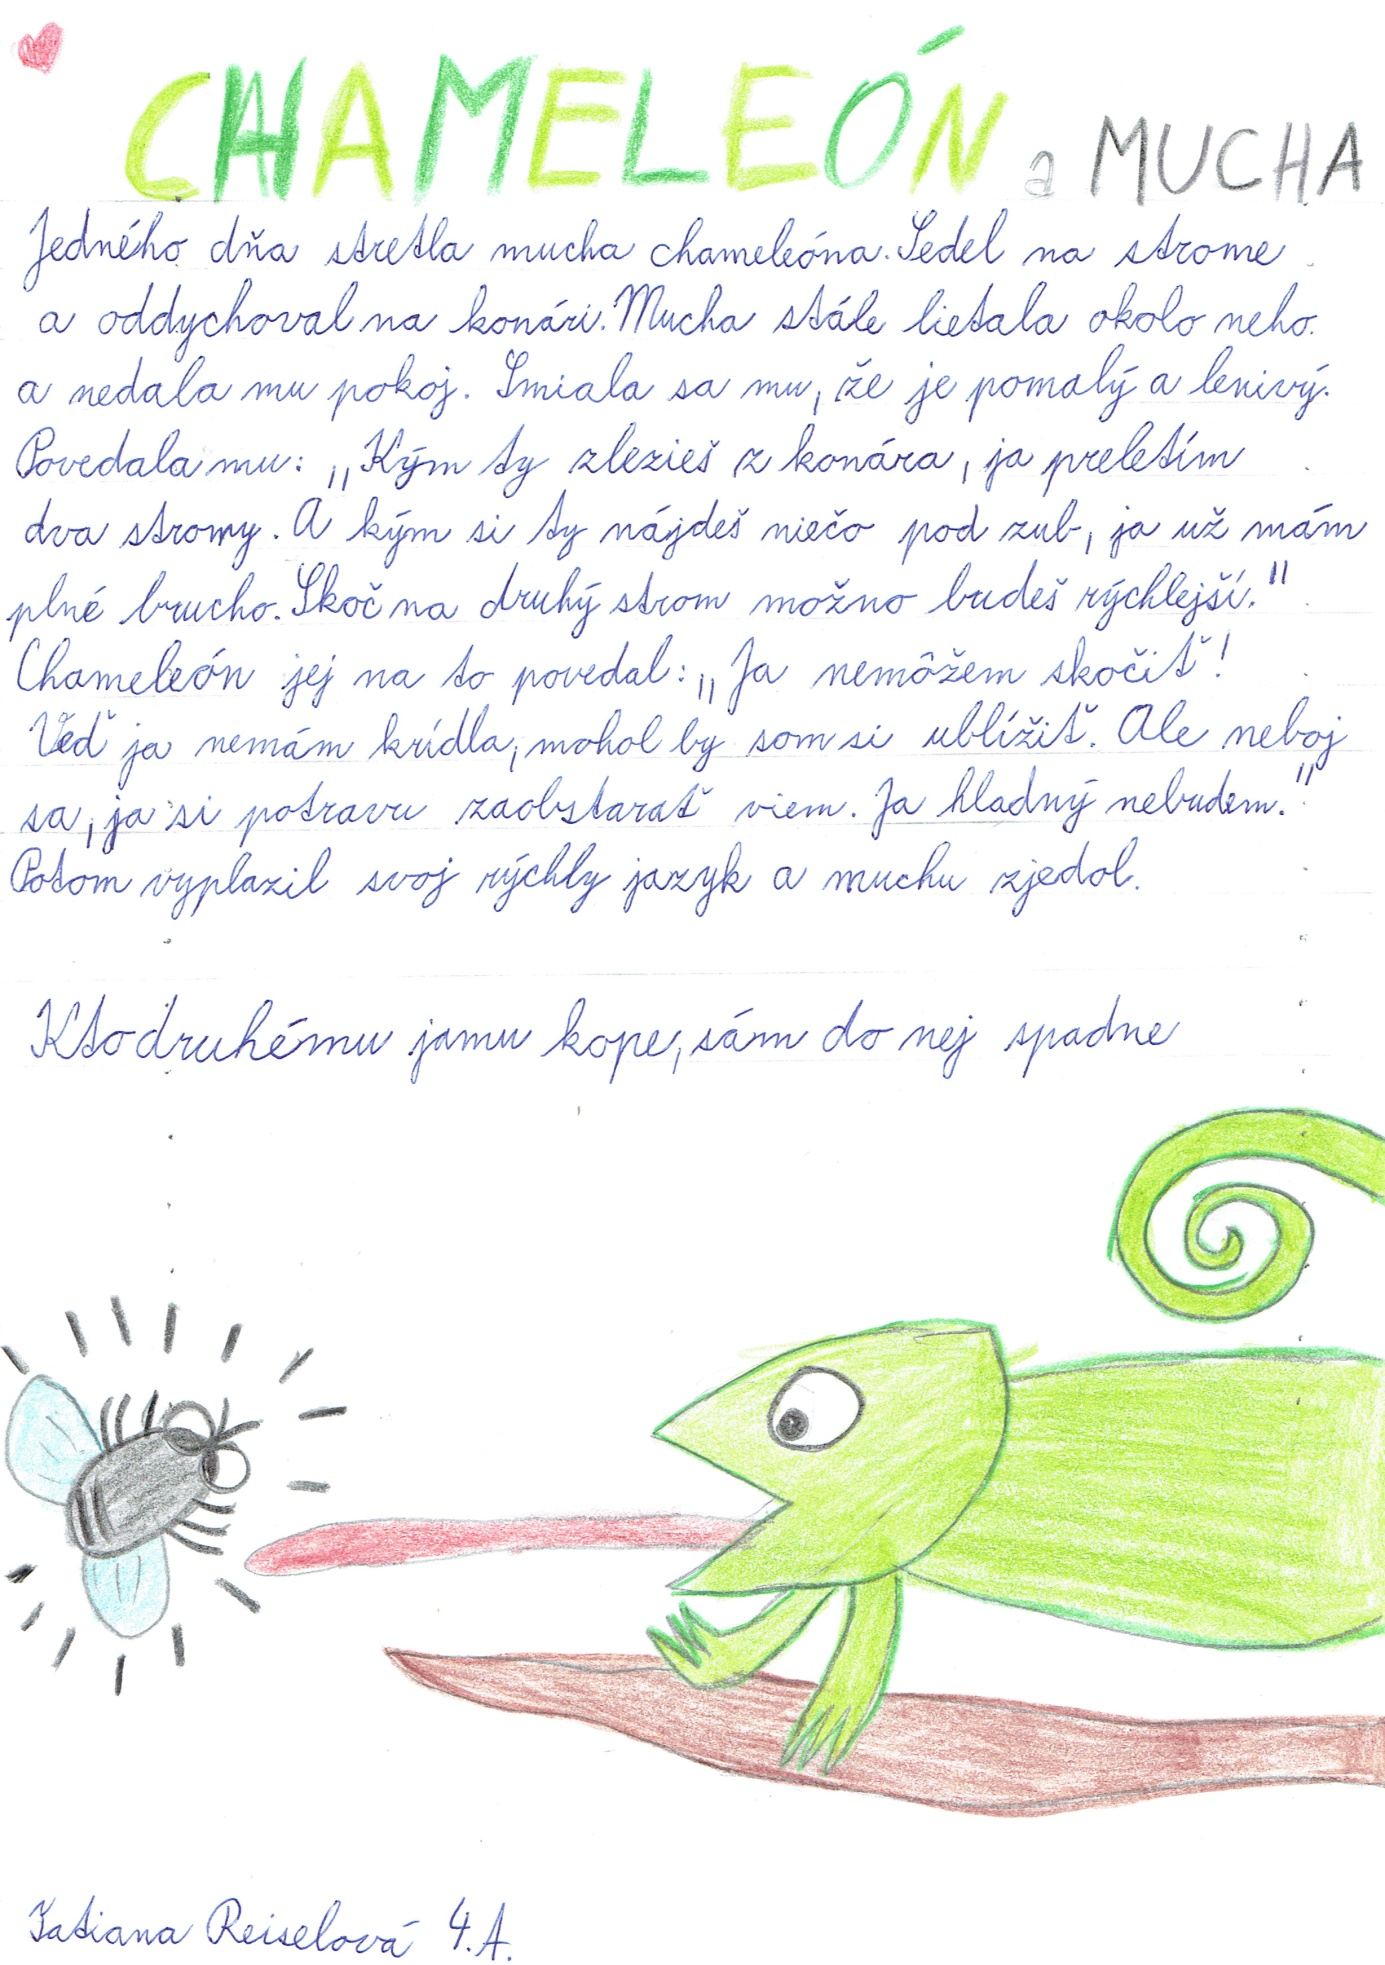 CHAMELEÓN a MUCHA
Jedného dňa stretla mucha chameleóna. Sedel na strome
a oddychoval na konári. Mucha stále lietala okolo neho
a nedala mu pokoj. Smiala sa mu, že je pomalý a lenivý.
Povedala mu: „Kým ty zlezieš z konára, ja preletím
dva stromy. A kým si ty nájdeš niečo pod zub, ja už mám
plné brucho. Skoč na druhý strom možno budeš rýchlejší."
Chameleón jej na to povedal: „Ja nemôžem skočiť!
Veď ja nemám krídla, mohol by som si ublížiť. Ale neboj
sa, ja si potravu zaobstarať viem. Ja hladný nebudem."
Potom vyplazil svoj rýchly jazyk a muchu zjedol.
Kto druhému jamu kope, sám do nej spadne
Tatiana Reiselová 4.A.